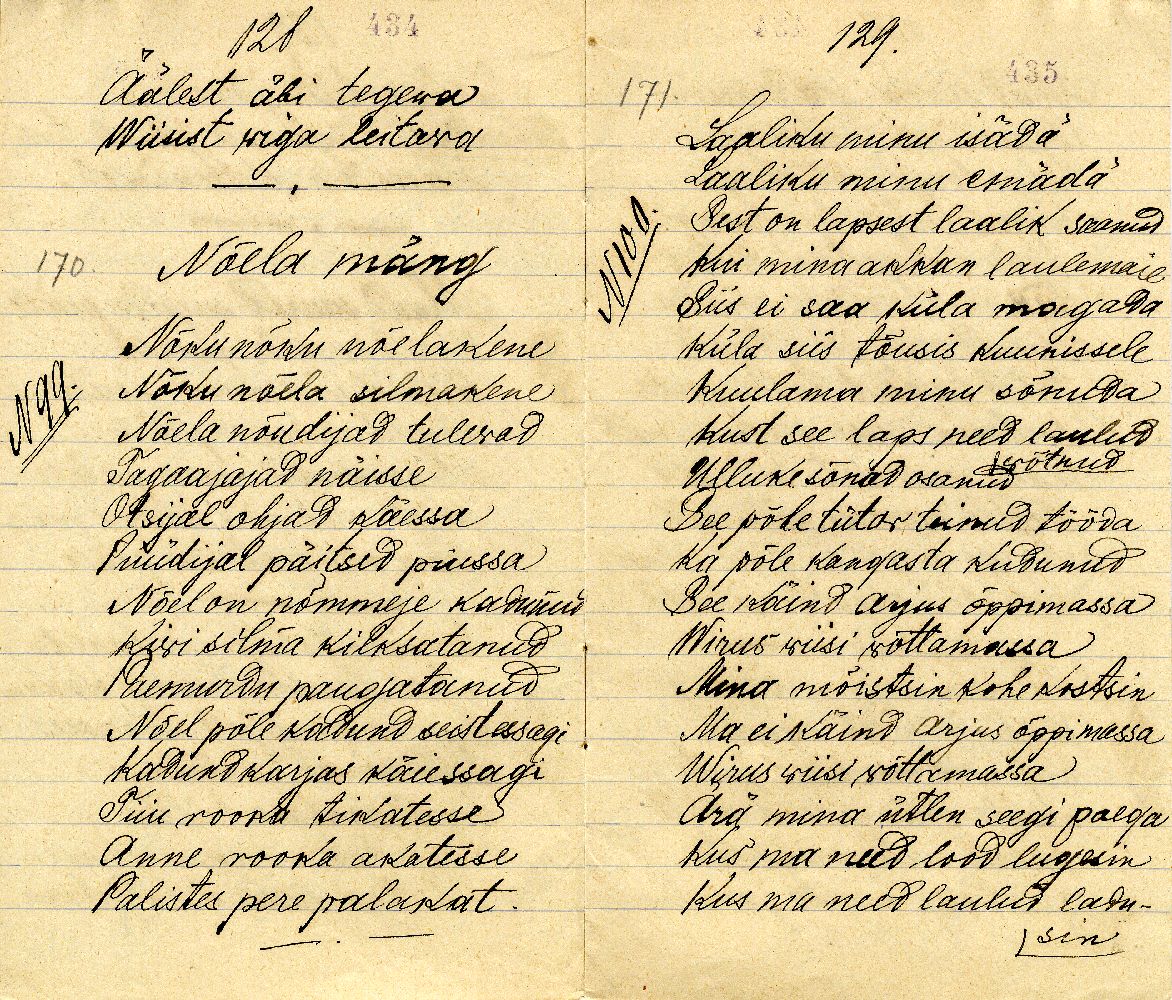 128
434
Äälest äbi tegewa
Wiisist wiga leitawa
170.
Nõela mäng
N 99.
Nõku nõku nõelakene
Nõku nõela silmakene
Nõela nõudijad tulewad
Tagaajajad näisse
Otsijal ohjad käessa
Püüdijal päitsed piussa
Nõel on nõmmeje kadunud
Kiwi silma kilksatanud
Paemurdu paugatanud
Nõel põle kadund seistessagi
Kadund karjas käiessagi
Tiiu rooka tikatesse
Anne rooka akatesse
Palistes pere palakat.
129.
435
171.
N 100.
Laaliku minu isädä
Laaliku minu emädä
Sest on lapsest laalik saanud
Kui mina akkan laulemaie
Siis ei saa küla magada
Küla siis tõusis kuunissele
Kuulama minu sõnuda
Kust see laps need laulud
wõtnud
Ulluke sõnad osanud
See põle tütar teinud tööda
Ka põle kangasta kudunud
See käind Arjus õppimassa
Wirus wiisi wõttamassa
Mina mõistsin kohe kostsin
Ma ei käind Arjus õppimassa
Wirus wiisi wõttamassa
Ärä mina ütlen seegi paega
Kus ma need lood lugesin
Kus ma need laulud ladu-
sin